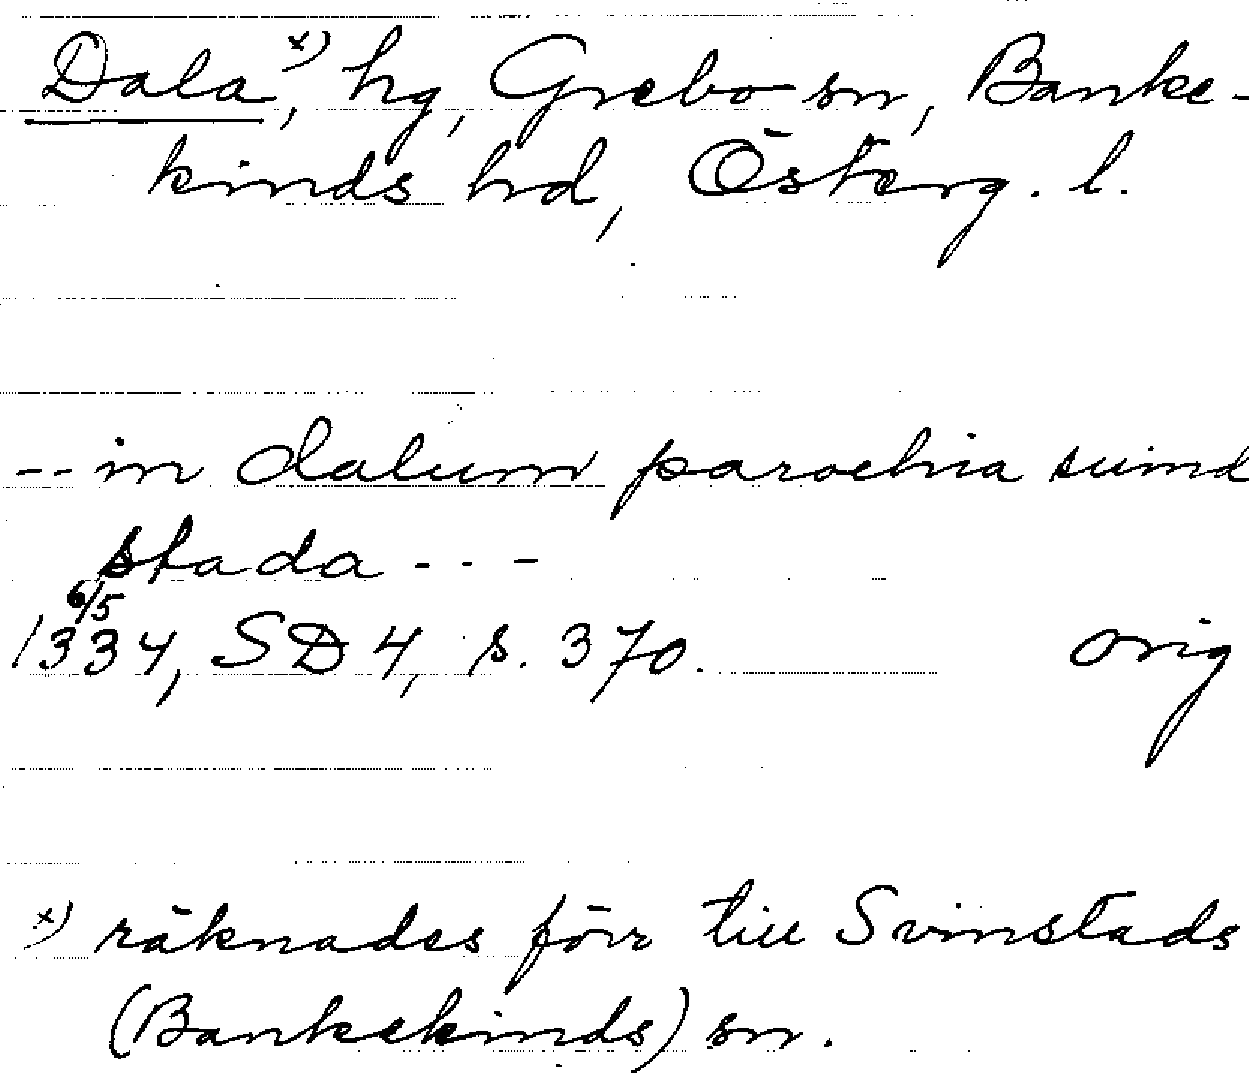 Dala x), hg, Grebo sn, Banke-
kinds hrd, Österg. l.
-- in dalum parochia suind
stada - - -
6/5
1334, SD 4, s. 370. orig
x) räknades förr till Svinstads
(Bankekinds) sn.